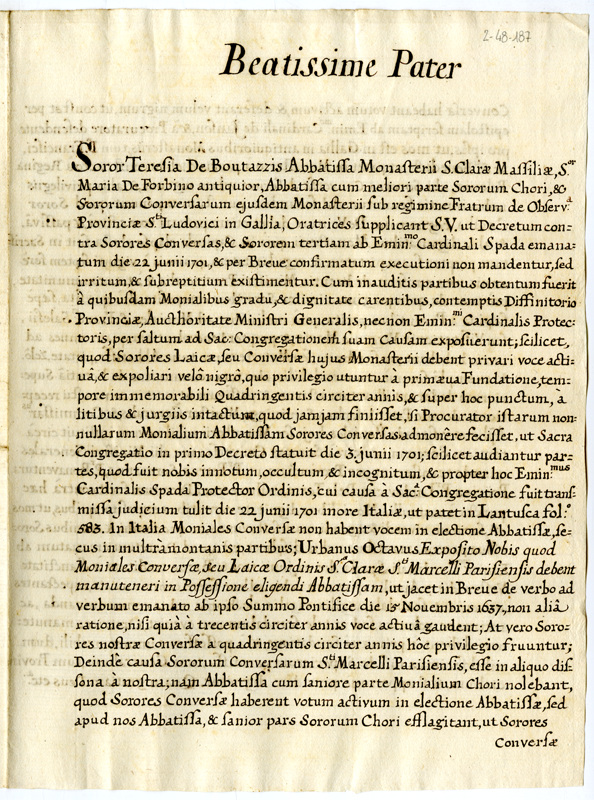 2-48-187
Beatissime Pater
Soror Teresia De Boutazzis Abbatissa Monasterii S. Claræ Massiliæ, S.or
Maria De Forbino antiquior, Abbatissa cum meliori parte Sororum Chori, &
Sororum Conversarum ejusdem Monasterii sub regimine Fratrum de Observ.a
Provinciæ S.ti Ludovici in Gallia, Oratrices supplicant S.V. ut Decretum con=
tra Sorores Conversas, & Sororem tertiam ab Emin.mo Cardinali Spada emana=
tum die 22 junii 1701, & per Breve confirmatum executioni non mandentur, sed
irritum, & subreptitium existimentur. Cum inauditis partibus obtentum fuerit
à quibusdam Monialibus gradu, & dignitate carentibus, contemptis Diffinitorio
Provinciæ, Aucthoritate Ministri Generalis, nec non Emin.mi Cardinalis Protec=
toris, per saltum ad Sac: Congregationem suam Causam exposuerunt; scilicet,
quod Sorores Laicæ, seu Conversæ hujus Monasterii debent privari voce acti=
uâ, & expoliari velô nigrô, quo privilegio utuntur à primæua Fundatione, tem=
pore immemorabili Quadringentis circiter annis, & super hoc punctum, a
litibus & jurgiis intactum, quod jamjam finiisset, si Procurator istarum non=
nullarum Monialium Abbatissam Sorores Conversas admonêre fecisset, ut Sacra
Congregatio in primo Decreto statuit die 3. junii 1701; scilicet audiantur par=
tes, quod fuit nobis innotum, occultum, & incognitum, & propter hoc Emin.mus
Cardinalis Spada Protector Ordinis, cui causa à Sac: Congregatione fuit trans=
missa judicium tulit die 22 junii 1701 more Italiæ, ut patet in Lantusca fol.o
583. In Italia Moniales Conversæ non habent vocem in electione Abbatissæ, se=
cus in multràmontanis partibus; Urbanus Octavus Exposito Nobis quod
Moniales Conversæ, seu Laicæ Ordinis S.æ Claræ S.ti Marcelli Parisiensis debent
manuteneri in Possessione eligendi Abbatissam, ut jacet in Breue de verbo ad
verbum emanato ab ipso Summo Pontifice die Nouembris 1637, non aliâ
ratione, nisi quià à trecentis circiter annis voce actiuâ gaudent; At vero Soro=
res nostræ Conversæ à quadringentis circiter annis hôc privilegio fruuntur;
Deinde causa Sororum Conversarum S.ti Marcelli Parisiensis, esse in aliquo dis=
sona à nostra; nam Abbatissa cum saniore parte Monialium Chori nolebant,
quod Sorores Conversæ haberent votum activum in electione Abbatissæ, sed
apud nos Abbatissa, & sanior pars Sororum Chori efflagitant, ut Sorores
Conversæ